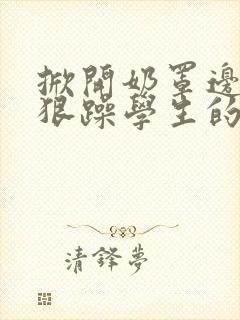 掀開奶罩邊
狠躁學生的
清鋒夢